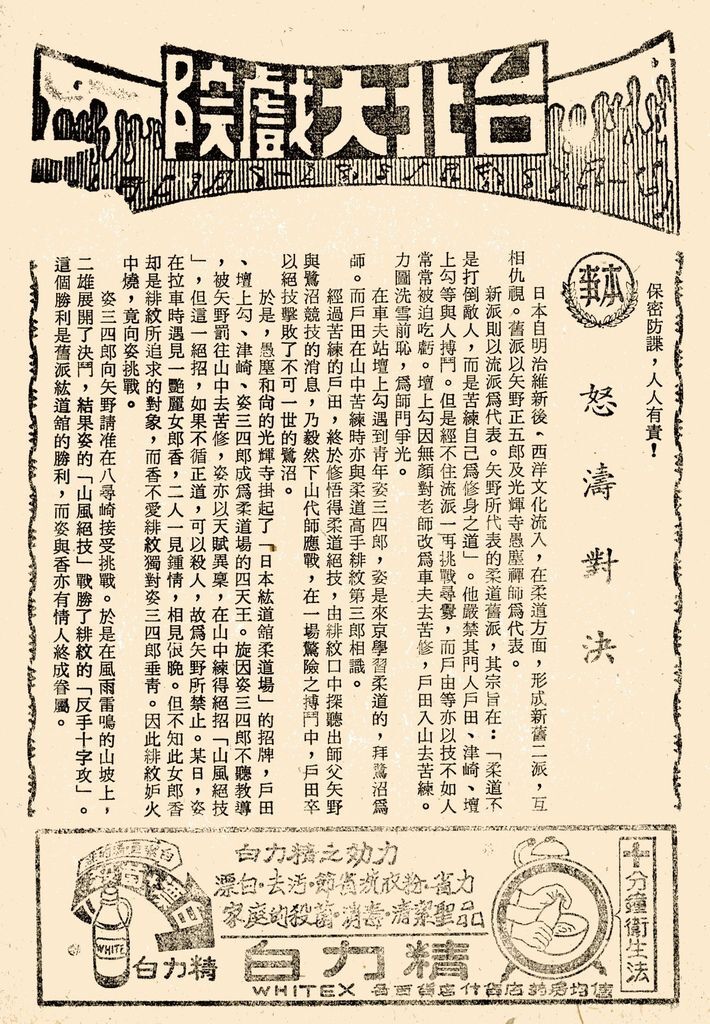 台北大戲院
保密防諜，人人有責！
本事
怒濤對決
日本自明治維新後、西洋文化流入，在柔道方面，形成新舊二派，互
相仇視。舊派以矢野正五郎及光輝寺愚塵禪師爲代表。
新派則以流派爲代表。矢野所代表的柔道舊派，其宗旨在：「柔道不
是打倒敵人，而是苦練自己爲修身之道」。他嚴禁其門人戶田、津崎、壇
上勾等與人搏鬥。但是經不住流派一再挑戰尋釁，而戶由等亦以技不如人
常常被迫吃虧。壇上勾因無顏對老師改爲車夫去苦修，戶田入山去苦練。
力圖洗雪前恥，爲師門爭光。
在車夫站壇上勾遇到青年姿三四郎，姿是來京學習柔道的，拜鷺沼爲
師。而戶田在山中苦練時亦與柔道高手緋紋第三郎相識。
經過苦練的戶田，終於修悟得柔道絕技，由緋紋口中探聽出師父矢野
與鷺沼競技的消息，乃毅然下山代師應戰，在一場驚險之搏鬥中，戶田卒
以絕技擊敗了不可一世的鷺沼。
於是，愚塵和尙的光輝寺掛起了「日本紘道館柔道場」的招牌，戶田
、壇上勾、津崎、姿三四郎成爲柔道場的四天王。旋因姿三四郎不聽教導
，被矢野罰往山中去苦修，姿亦以天賦異稟，在山中練得絕招「山風絕技
」，但這一絕招，如果不循正道，可以殺人，故爲矢野所禁止。某日，姿
在拉車時遇見一艷麗女郎香，二人一見鍾情，相見恨晚。但不知此女郎香
却是緋紋所追求的對象，而香不愛緋紋獨對姿三四郎垂靑。因此緋紋妒火
中燒，竟向姿挑戰。
姿三四郎向矢野請准在八尋崎接受挑戰。於是在風雨雷鳴的山坡上，
二雄展開了決鬥，結果姿的「山風絕技」戰勝了緋紋的「反手十字攻」。
這個勝利是舊派紘道館的勝利，而姿與香亦有情人終成眷屬。
十分鐘衛生法
白力精之効力
漂白·去污·節省洗衣粉·省力
家庭的殺菌·消毒·清潔聖品
白力精
WHITEX
WHITE
白力精